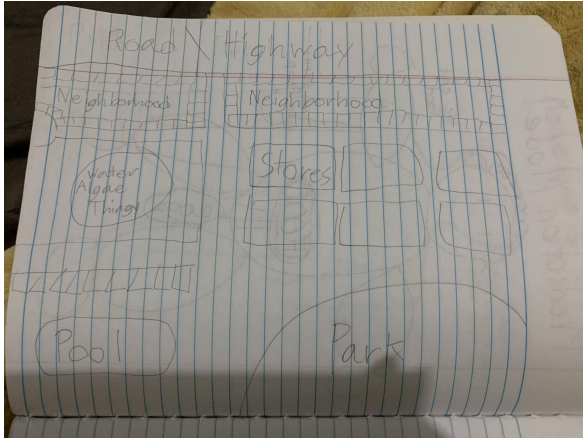 Road \ Highway
Neighborhood
Neighborhood
Water
Algae
Thingy
Stores
Pool
Park